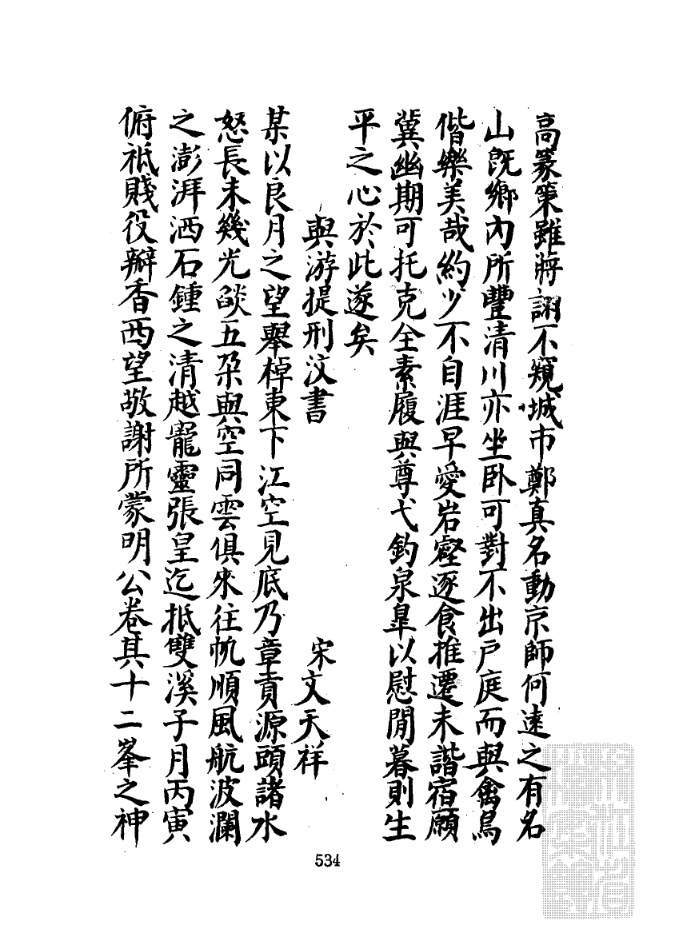 高篆策雖將詡不窺城市鄭真名動京師何遠之有名
山既鄉內所豐清川亦坐卧可對不出戶庭而與禽鳥
偕樂美哉約少不自涯早愛岩壑逐食推遷未諧宿願
冀幽期可托克全素履與尊弋釣泉臯以慰閒暮則生
平之心於此遂矣
與游提刑汶書
宋文天祥
某以良月之望舉棹東下江空見底乃章貢源頭諸水
怒長未幾光燄五朶與空同雲俱來往帆順風航波瀾
之澎湃洒石鍾之清越寵靈張皇迄抵雙溪子月丙寅
俯祗賤役瓣香西望敬謝所蒙明公卷其十二峯之神
534